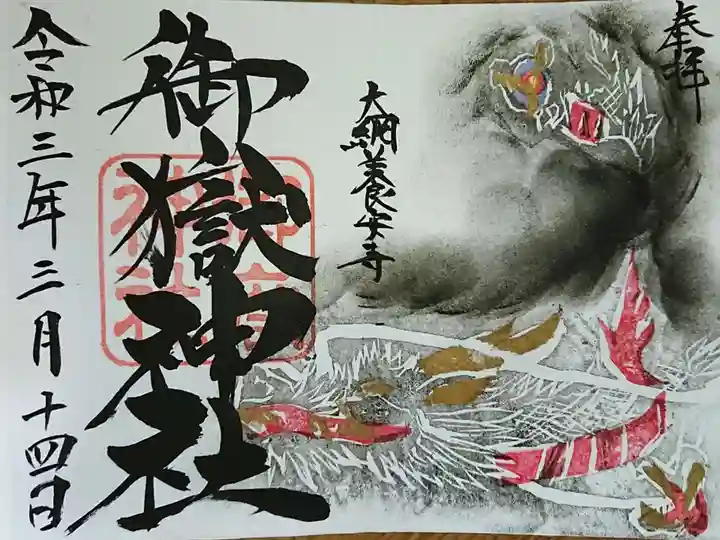 奉拝
大網養安寺
御嶽神社
令和三年三月十四日